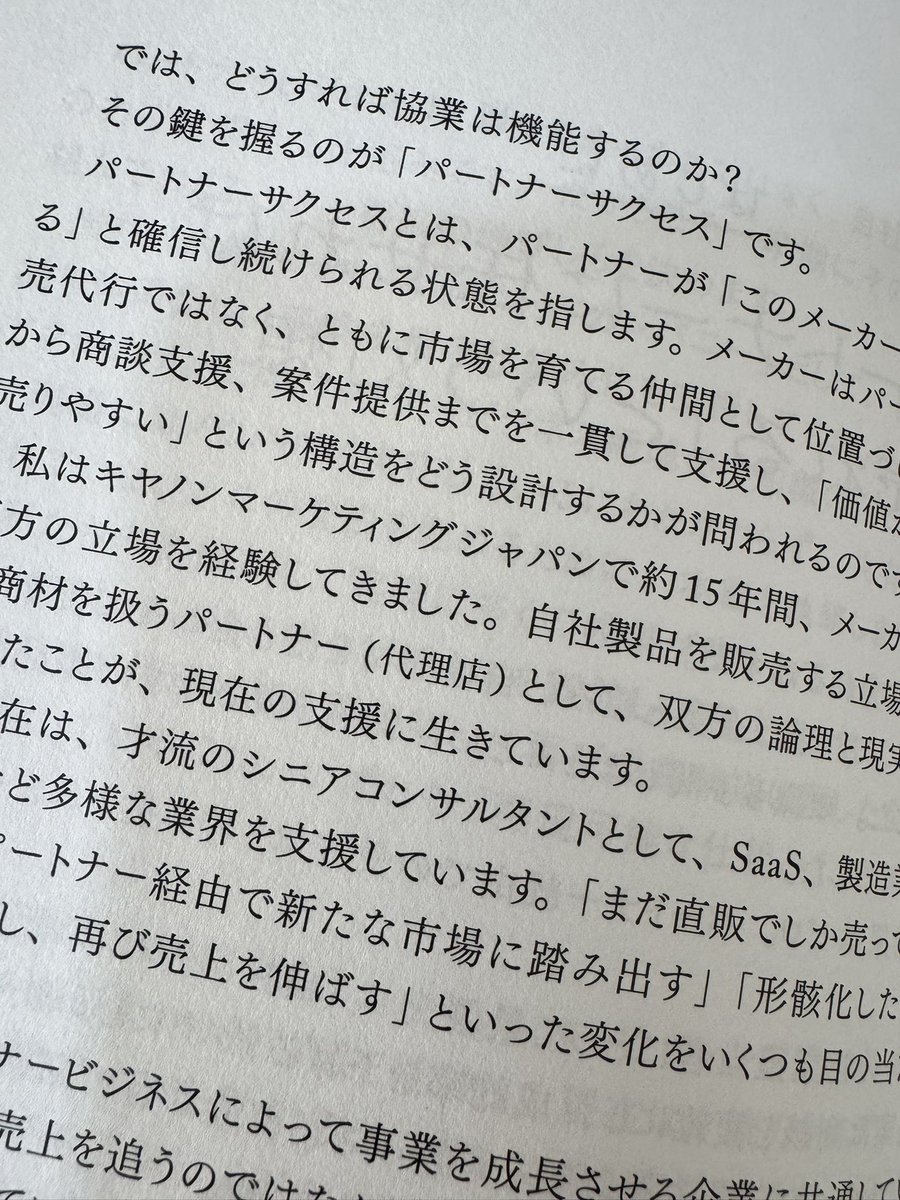 では、どうすれば協業は機能するのか？
その鍵を握るのが「パートナーサクセス」です。
パートナーサクセスとは、パートナーが「このメーカー
る」と確信し続けられる状態を指します。メーカーはパー
売代行ではなく、ともに市場を育てる仲間として位置づけ
から商談支援、案件提供までを一貫して支援し、「価値が
売りやすい」という構造をどう設計するかが問われるのです
私はキヤノンマーケティングジャパンで約15年間、メーカ
方の立場を経験してきました。自社製品を販売する立場
商材を扱うパートナー（代理店）として、双方の論理と現実
たことが、現在の支援に生きています。
在は、才流のシニアコンサルタントとして、SaaS、製造業
ど多様な業界を支援しています。「まだ直販でしか売って
パートナー経由で新たな市場に踏み出す」「形骸化した
し、再び売上を伸ばす」といった変化をいくつも目の当
ナービジネスによって事業を成長させる企業に共通して
売上を追うのではな